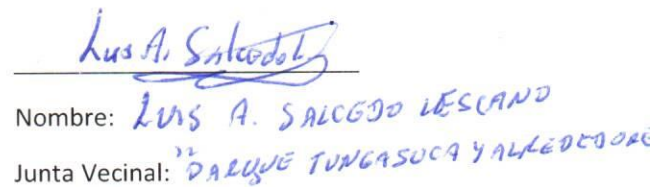 Luis A. Salcedo L
Nombre: LUIS A. SALCEDO LESCANO
Junta Vecinal: "PARQUE TUNGASUCA Y ALREDEDORE